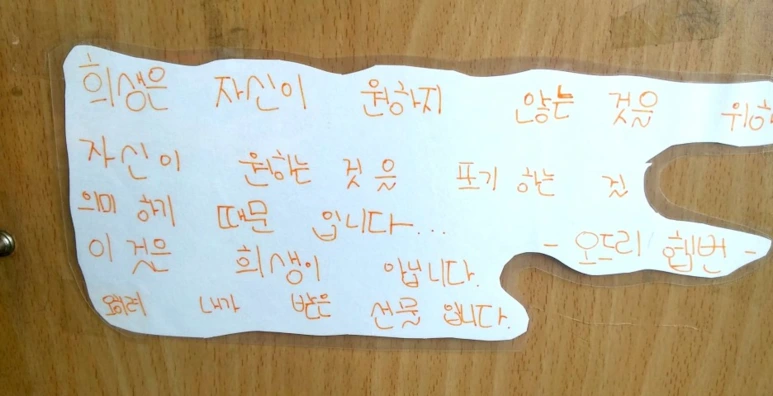 희생은 자신이 원하지 않는 것을 위해
자신이 원하는 것을 포기 하는 것
의미 하기 때문 입니다...
- 오드리 헵번 -
이 것은 희생이 아닙니다.
오히려 내가 받은 선물 입니다.